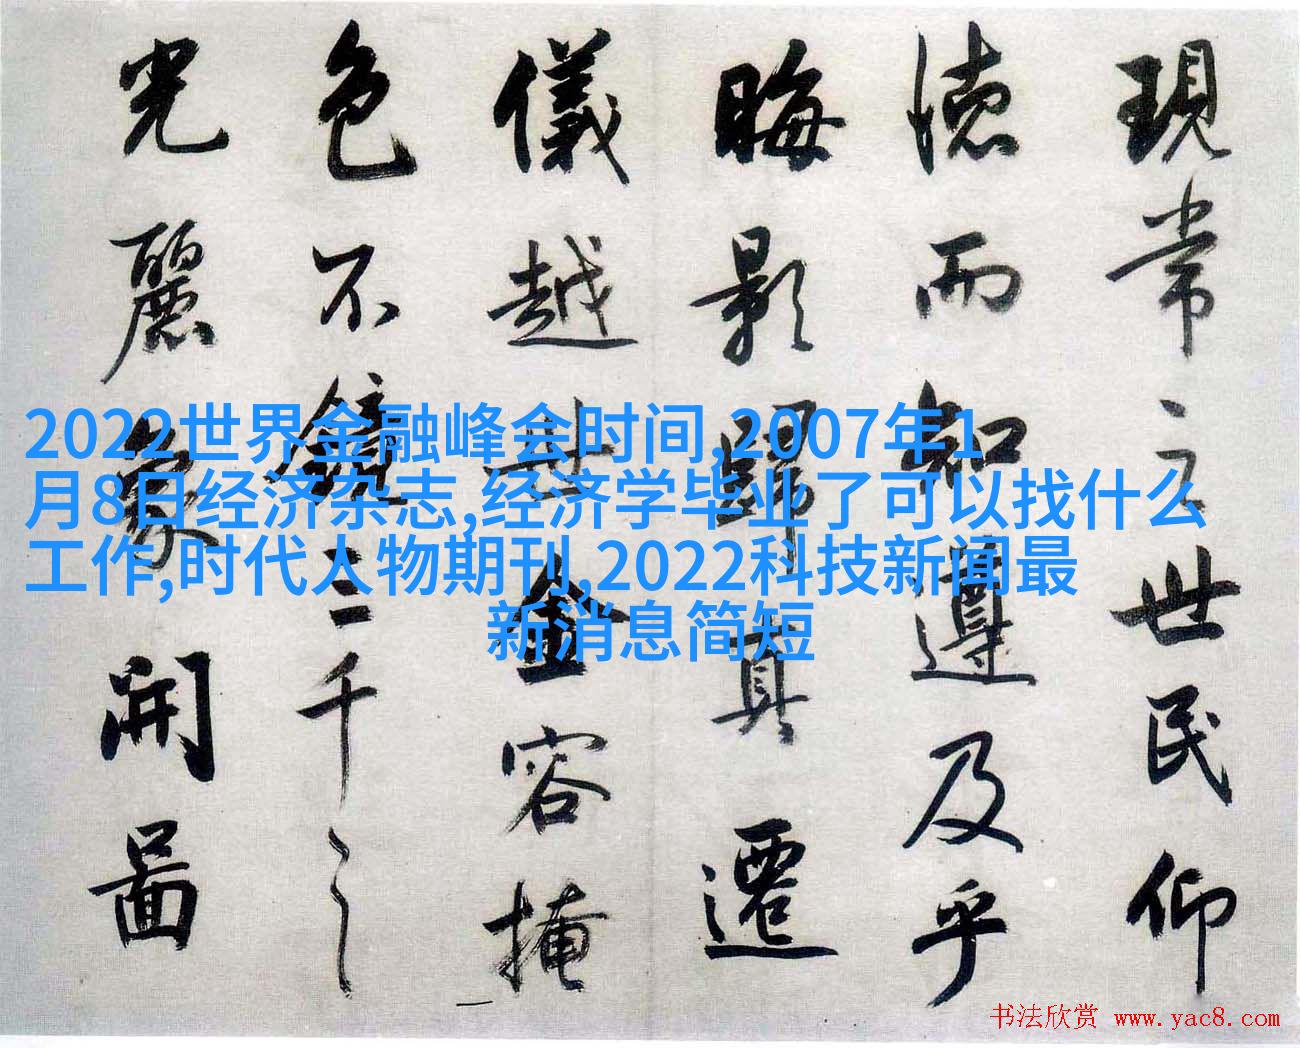 現常之世民仰
德而知遵及乎
晦影歸真遷
儀越世金容掩
色不鏡三千之
光麗象開圖
2022世界金融峰会时间,2007年1
月8日经济杂志,经济学毕业了可以找什么
工作,时代人物期刊,2022科技新闻最
新消息简短
书法欣赏 www.yac8.com